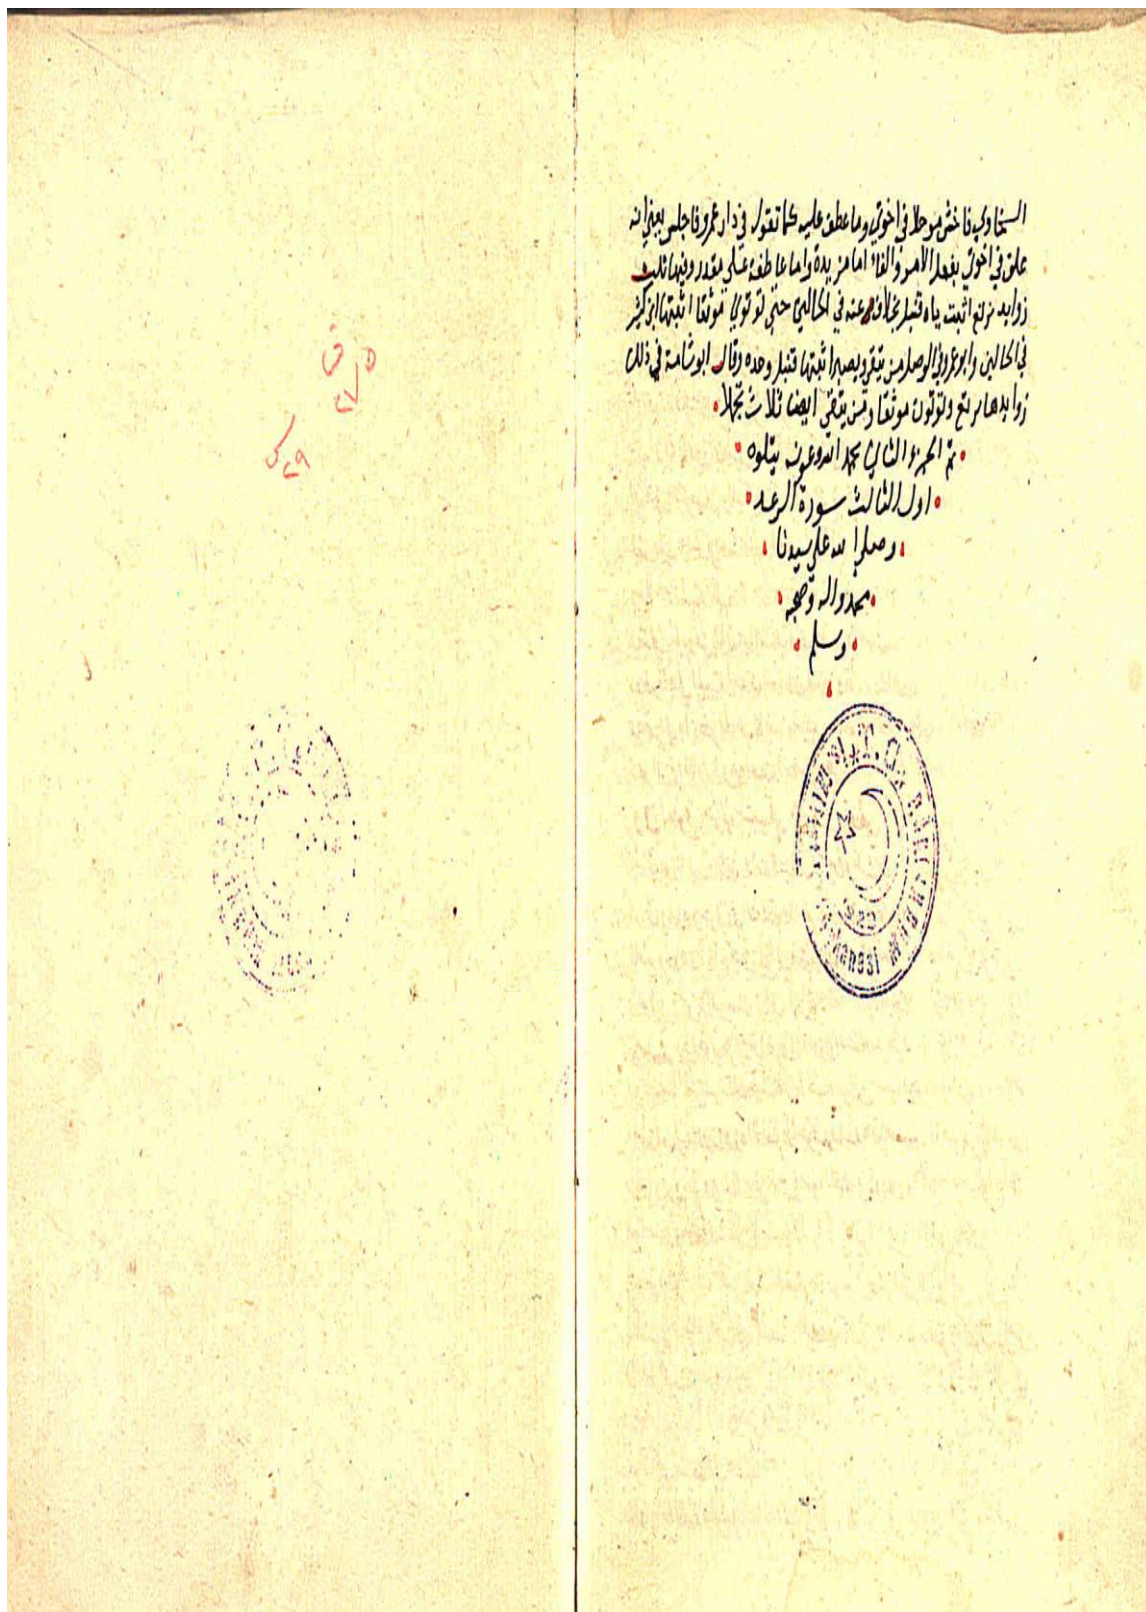 السخاوي فاخش موحلا في اخوتي وما عطف عليه كما تقول في دار عمرو فاجلس يعني انه
علق في اخوتي بفعل الامر والفاء اما مزيدة واما عاطفة على مقدر وفيها ثلث
زوايد نرتع اثبت ياه قنبل بخلاف عنه في الحالين حتى توتوني موثقا اثبتها ابن كثير
في الحالين وابو عمرو في الوصل من يتق ويصبر اثبتها قنبل وحده وقال ابو شامة في ذلك
زوايدها نرتع وتوتون موثقا ومن يتقي ايضا ثلاث تجلا
تم الجزء الثاني بحمد الله وعونه يتلوه
اول الثالث سورة الرعد
وصلى الله على سيدنا
محمد واله وصحبه
وسلم
T. C.